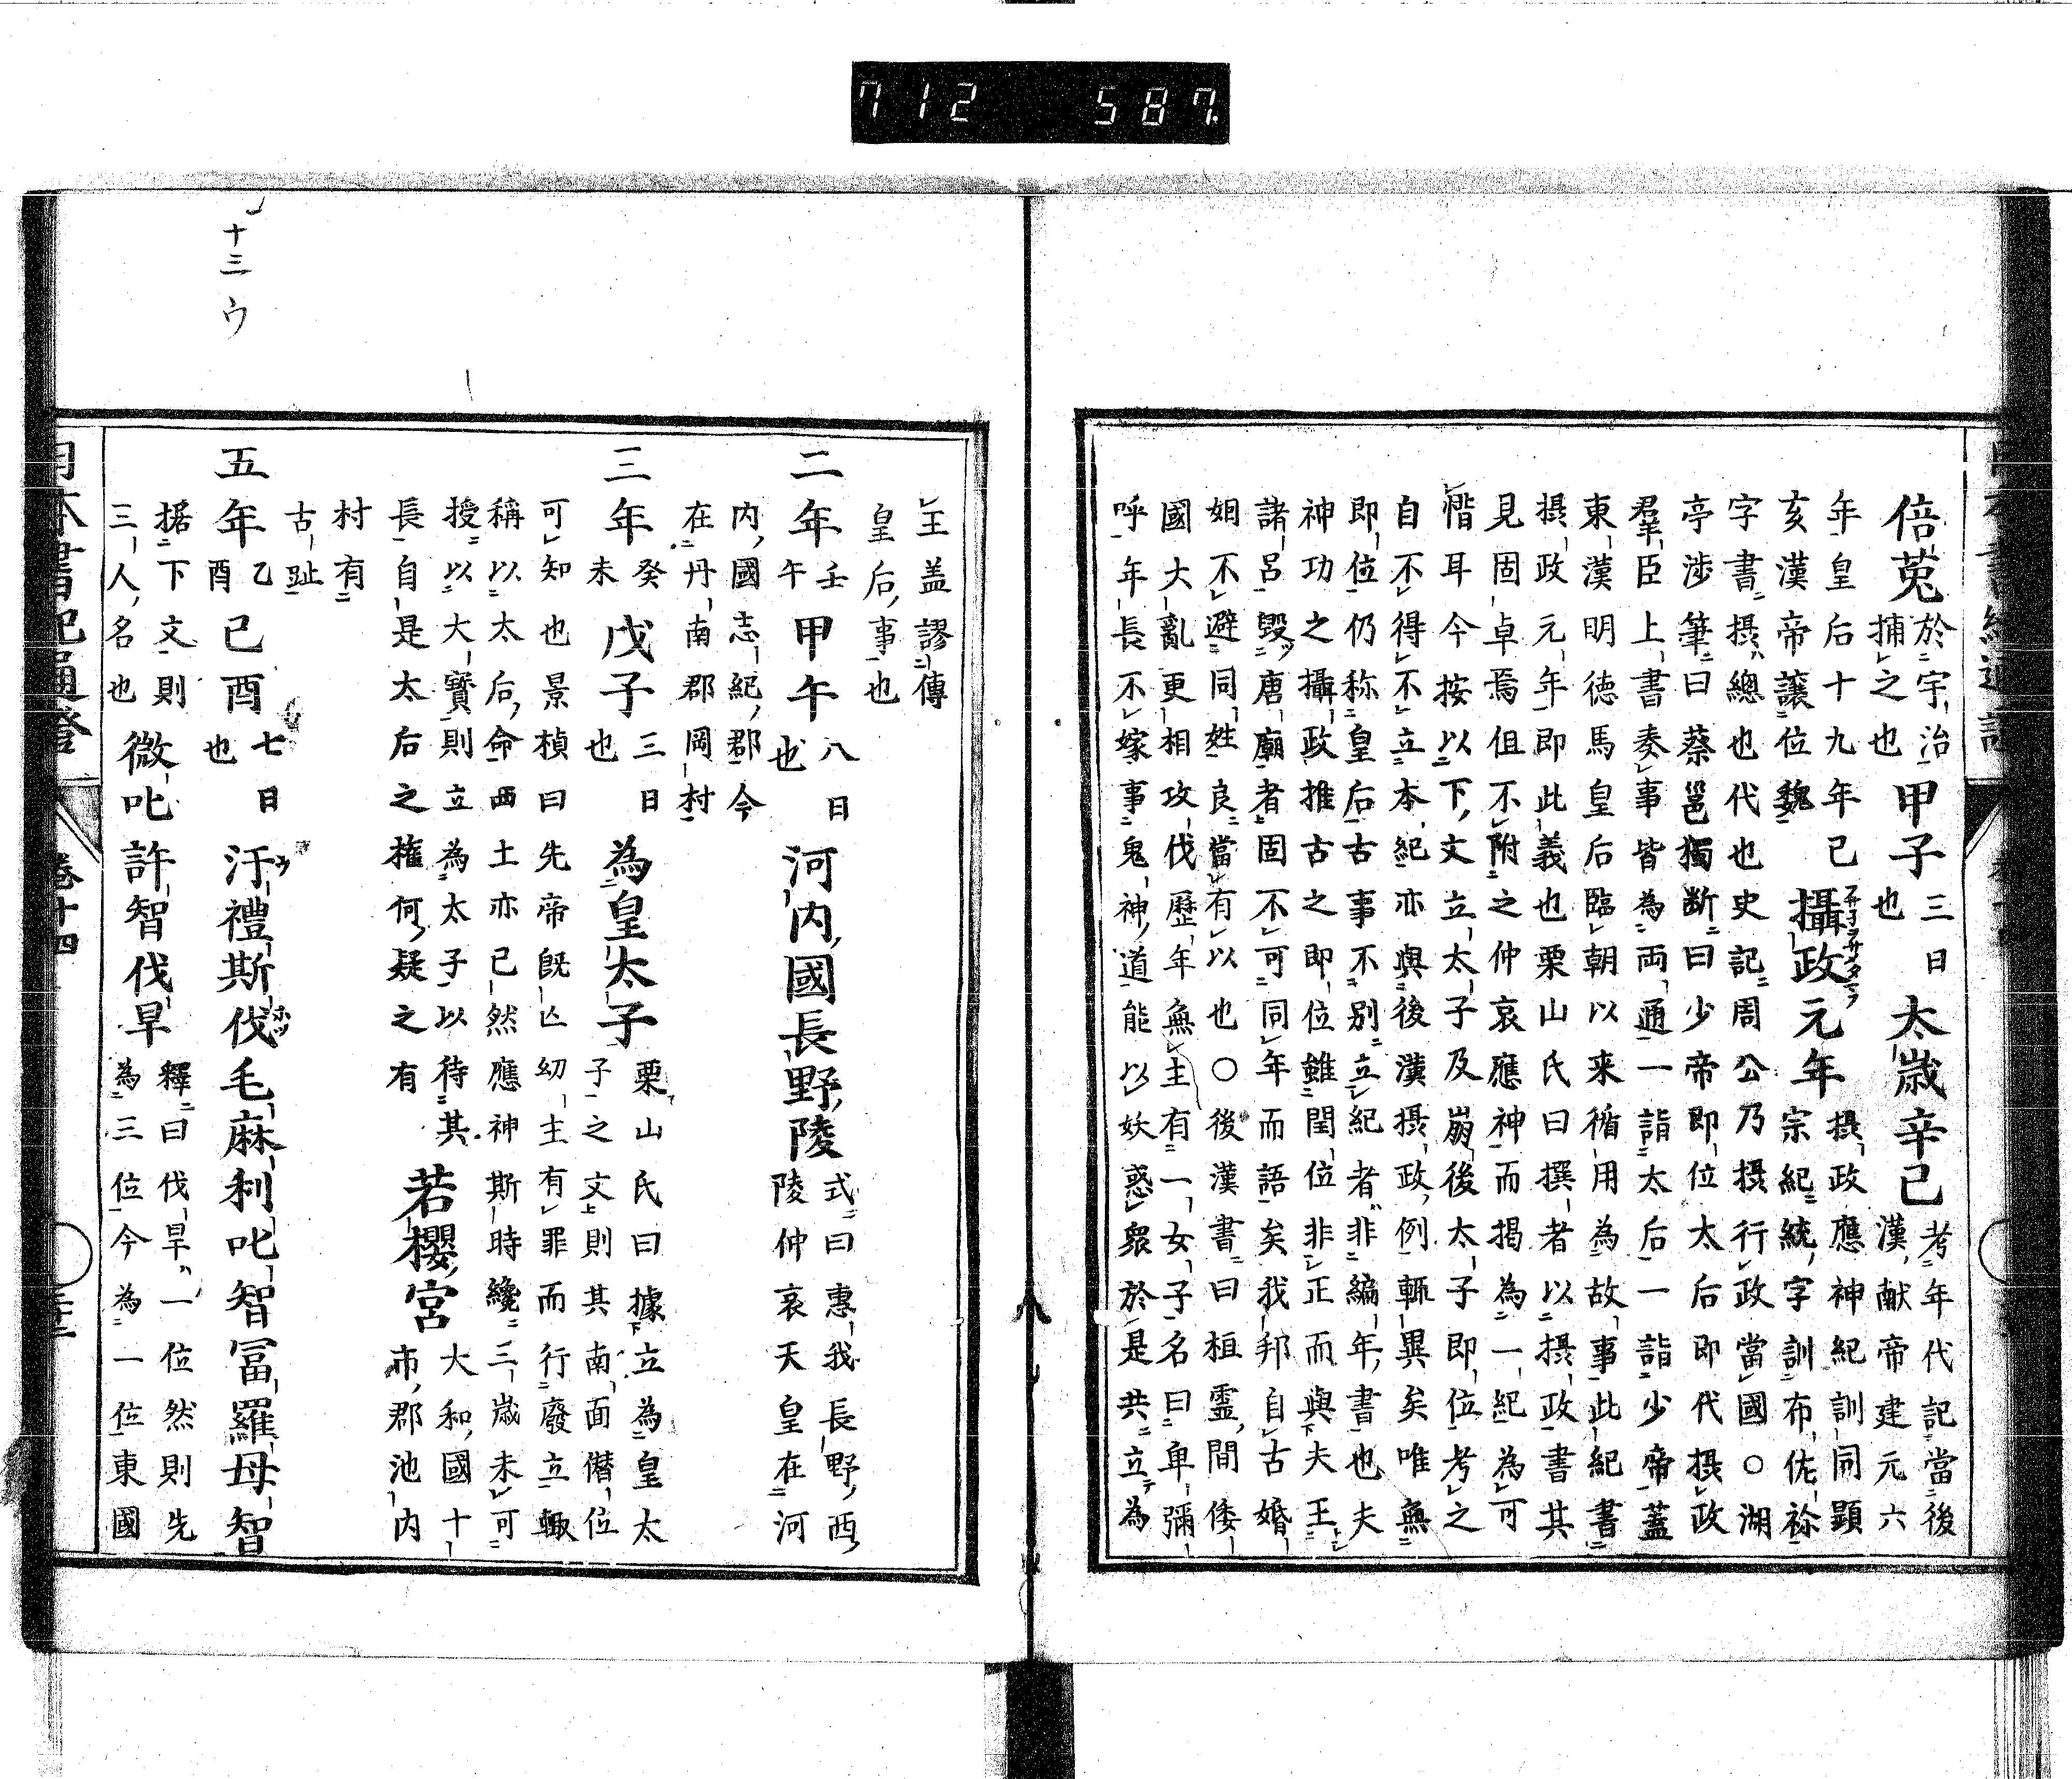 倍菟 於宇治捕之也 甲子 三日也 太歳辛己 考年代記當後漢献帝建元六
年皇后十九年己亥漢帝讓位魏 攝政元年 摂政應神紀訓同顕宗紀統字訓布佐祢
字書摂總也代也史記周公乃摂行政當國○湖
亭渉筆曰蔡邕獨断曰少帝即位太后即代摂政
羣臣上書奏事皆為両通一詣太后一詣少帝蓋
東漢明徳馬皇后臨朝以来循用為故事此紀書
摂政元年即此義也栗山氏曰撰者以摂政書其
見固卓焉但不附之仲哀應神而揭為一紀為可
惜耳今按以下文立太子及崩後太子即位考之
自不得不立本紀亦與後漢摂政例輙異矣唯無
即位仍称皇后古事不別立紀者非編年書也夫
神功之攝政推古之即位雖閏位非正而與夫王
諸呂毀唐廟者固不可同年而語矣我邦自古婚
姻不避同姓良當有以也○後漢書曰桓靈間倭
國大亂更相攻伐歴年無主有一女子名曰卑彌
呼年長不嫁事鬼神道能以妖惑衆於是共立為
王蓋謬傳
皇后事也
二年 壬午 甲午 八日也 河内國長野陵 式曰惠我長野西陵仲哀天皇在河
内國志紀郡今
在丹南郡岡村
三年 癸未 戊子 三日也 為皇太子 栗山氏曰據立為皇太子之文則其南面僭位
可知也景楨曰先帝既亡幼主有罪而行廢立輙
稱以太后命西土亦已然應神斯時纔三歳未可
授以大寶則立為太子以待其
長自是太后之権何疑之有 若櫻宮 大和國十市郡池内
村有
古趾
五年 乙酉 己酉 七日也 汙禮斯伐毛麻利叱智冨羅母智
据下文則三人名也 微叱許智伐旱 釋曰伐旱一位然則先為三位今為一位東國
日本書紀通證 巻十四
十三ウ
712 587